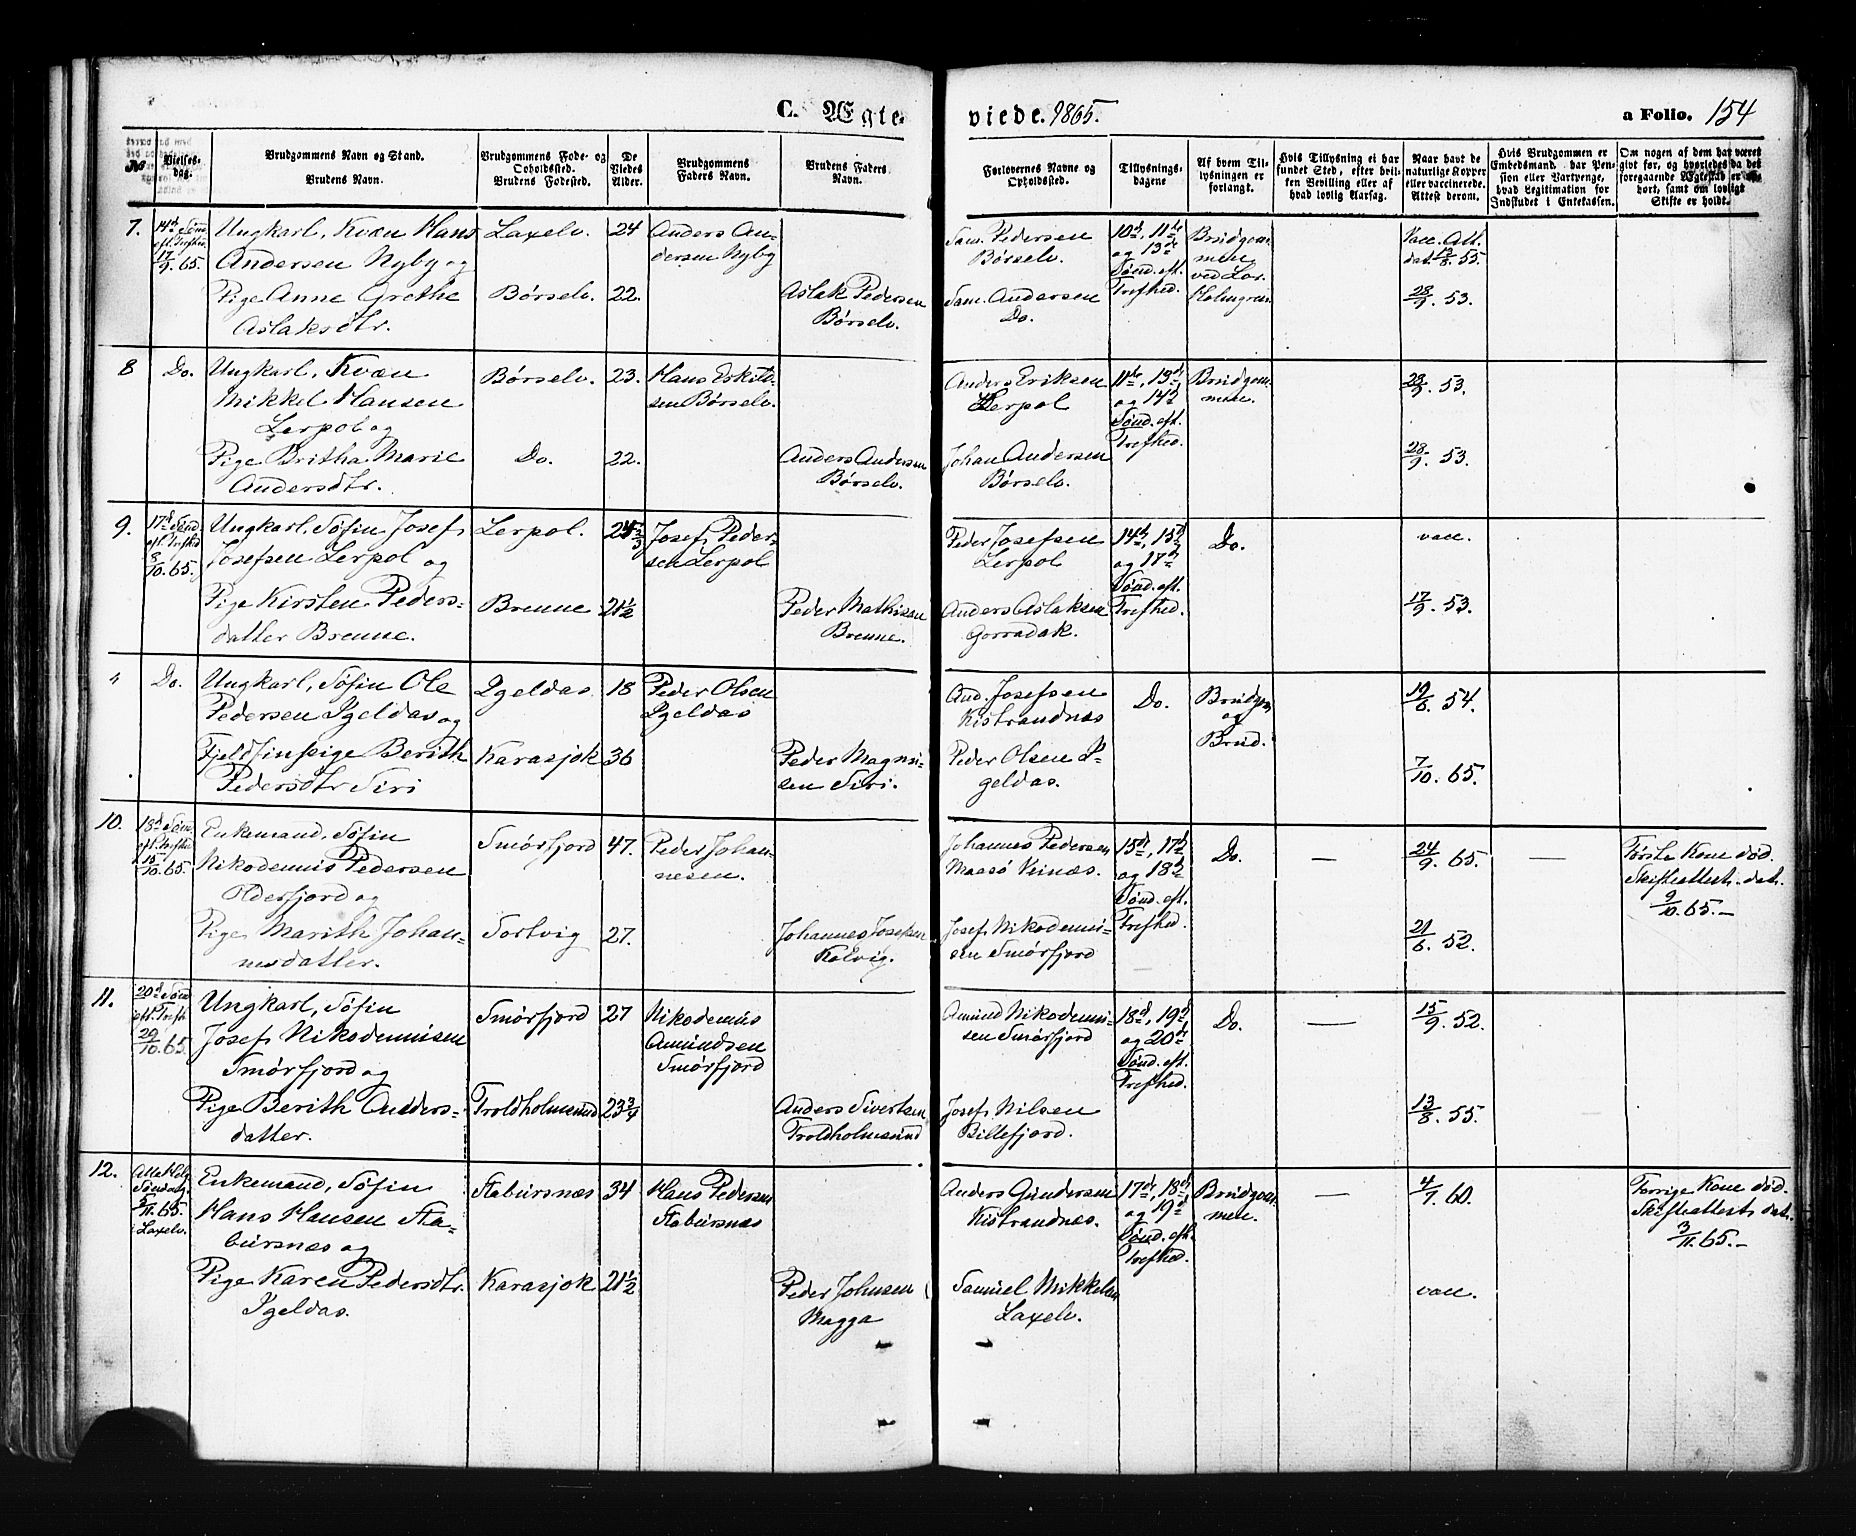 C. Ægte-
viede. 1865.
a Folio. 154
No.
Vielses-
dag.
Brudgommens Navn og Stand.
Brudens Navn.
Brudgommens Føde- og
Opholdssted.
Brudens Fødested.
De
Viedes
Alder.
Brudgommens
Faders Navn.
Brudens Faders
Navn.
Forlovernes Navne og
Opholdssted.
Tillysnings-
dagene
Af hvem Til-
lysningen er
forlangt.
Hvis Tillysning ei har
fundet Sted, efter hvil-
ken Bevilling eller af
hvad lovlig Aarsag.
Naar havt de
naturlige Kopper
eller vaccinerede.
Attest derom.
Hvis Brudgommen er
Embedsmand, har Pen-
sion eller Vartpenge,
hvad Legitimation for
Indskudet i Enkekassen.
Om nogen af dem har været
givt før, og hvorledes da det
foregaaende Ægteskab er
hørt, samt om lovligt
Skifte er holdt.
7.
14d Sönd.
eft. Trefhed.
17/9. 65.
Ungkarl, Kvæn Hans
Andersen Nyby og
Pige Anne Grethe
Aslaksdtr.
Laxelv.
Børselv.
24
22.
Anders An-
dersen Nyby
Aslak Pedersen
Børselv.
Sam. Pedersen
Børselv.
Sam. Andersen
Do.
10d, 11te
og 13d
Sönd. eft.
Trefhed.
Brudgom-
men
ved Lars
Holmgren
Vacc. Att.
dat. 13/8. 55.
28/9. 53.
8
Do.
Ungkarl, Kvæn
Mikkel Hansen
Lerpol og
Pige Britha Marie
Andersdtr.
Børselv.
Do.
23.
22.
Hans Eskild-
sen Børselv.
Anders Andersen
Børselv.
Anders Eriksen
Lerpol
Johan Andersen
Børselv.
11te, 13d
og 14d
Sönd. eft.
Trefhed.
Brudgom-
men.
28/9. 53.
28/9. 53.
9.
17d Sönd.
eft. Trefhed
8/10. 65.
Ungkarl, Søfin Josef
Josefsen Lerpol og
Pige Kirsten Peders-
datter Brenne.
Lerpol.
Brenne
21 1/2
Josef Peder-
sen Lerpol
Peder Mathisen
Brenne.
Peder Josefsen
Lerpol
Anders Aslaksen
Gorradak.
14d, 15d
og 17d
Sönd. eft.
Trefhed.
Do.
vacc.
17/9. 53.
"
Do.
Ungkarl, Søfin Ole
Pedersen Igeldas og
Fjeldfinpige Berith
Pedersdtr Siri
Igeldas.
Karasjok
18
36
Peder Olsen
Igeldas
Peder Magni-
sen Siri.
And. Josefsen
Kistrandnæs
Peder Olsen I-
geldas.
Do.
Brudgom
og
Brud.
19/6. 54.
7/10. 65.
10.
18d Sönd.
eft. Trefhed
15/10. 65.
Enkemand, Søfin
Nikodemus Pedersen
Olderfjord og
Pige Marith Johan-
nesdatter.
Smørfjord
Sortvig
47.
27.
Peder Johan-
nesen.
Johannes Josefsen
Kolvig.
Johannes Pedersen
Maasø Veinæs.
Josef Nikodemus-
sen Smørfjord
15d, 17d
og 18d
Sönd. eft.
Trefhed.
Do.
—
24/9. 65.
21/6. 52.
—
Første Kone død.
Skifteattest. dat.
9/10. 65.—
11.
20d Sönd
eft. Trefh.
29/10. 65.
Ungkarl, Søfin
Josef Nikodemusen
Smørfjord og
Pige Berith Anders-
datter.
Smørfjord
Troldholmsund
27
23 3/4
Nikodemus
Amundsen
Smørfjord
Anders Sivertsen
Troldholmsund
Amund Nikodemus-
sen Smørfjord
Josef Nilsen
Billefjord.
18d, 19d
og 20d
Sönd. eft.
Trefhed.
Do.
—
15/9. 52.
13/8. 55.
12.
Alle Helg.
Söndag
5/11. 65.
Laxelv.
Enkemand, Søfin
Hans Hansen Sta-
bursnæs og
Pige Karen Pedersdtr.
Igeldas.
Stabursnæs
Karasjok
34
21 1/2
Hans Pedersen
Stabursnæs
Peder Johnsen
Magga
Anders Gundersen
Kistrandnæs.
Samuel Mikkelsen
Laxelv.
17de, 18de
og 19d
Sönd. eft.
Trefhed.
Brudgom-
men.
—
4/7. 60.
vacc.
Forrige Kone død.
Skifteattest dat.
3/11. 65.—